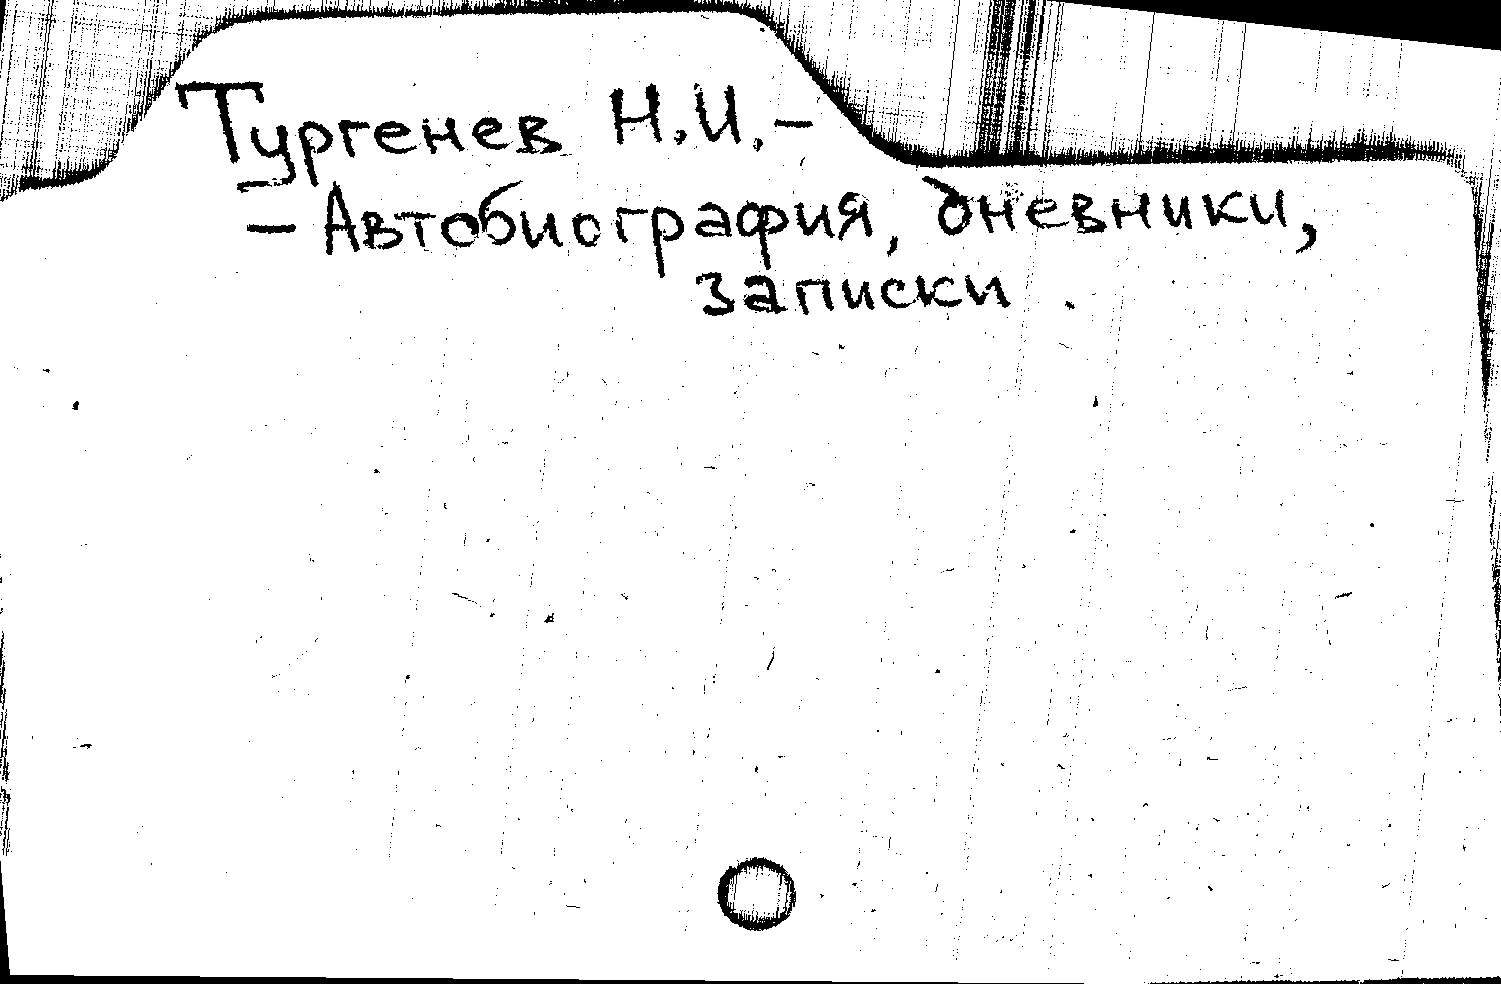 Тургенев Н.И. –
– Автобиография, дневники,
записки.